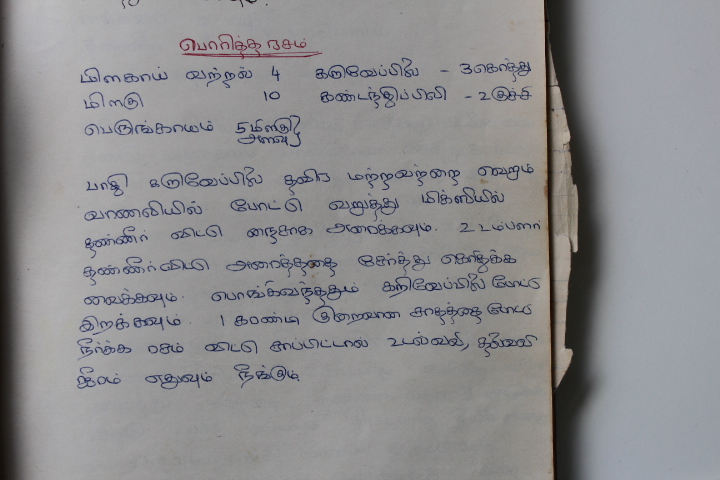 பொரித்த ரசம்
மிளகாய் வற்றல் 4 கருவேப்பிலை - 3 கொத்து
மிளகு 10 கண்டந்திப்பிலி - 2 குச்சி
பெருங்காயம் 5 மிளகு அளவு
பாதி கருவேப்பிலை தவிர மற்றவற்றை வெறும்
வாணலியில் போட்டு வறுத்து மிக்ஸியில்
தண்ணீர் விட்டு நைசாக அரைக்கவும். 2 டம்ளர்
தண்ணீர் விட்டு அரைத்ததை சேர்த்து கொதிக்க
வைக்கவும். பொங்கிவந்ததும் கறிவேப்பிலை போட்டு
இறக்கவும். 1 கரண்டி குழைவான சாதத்தை போட்டு
நீர்க்க ரசம் விட்டு சாப்பிட்டால் உடல்வலி, தலைவலி
ஜீரம் எதுவும் நீங்கும்